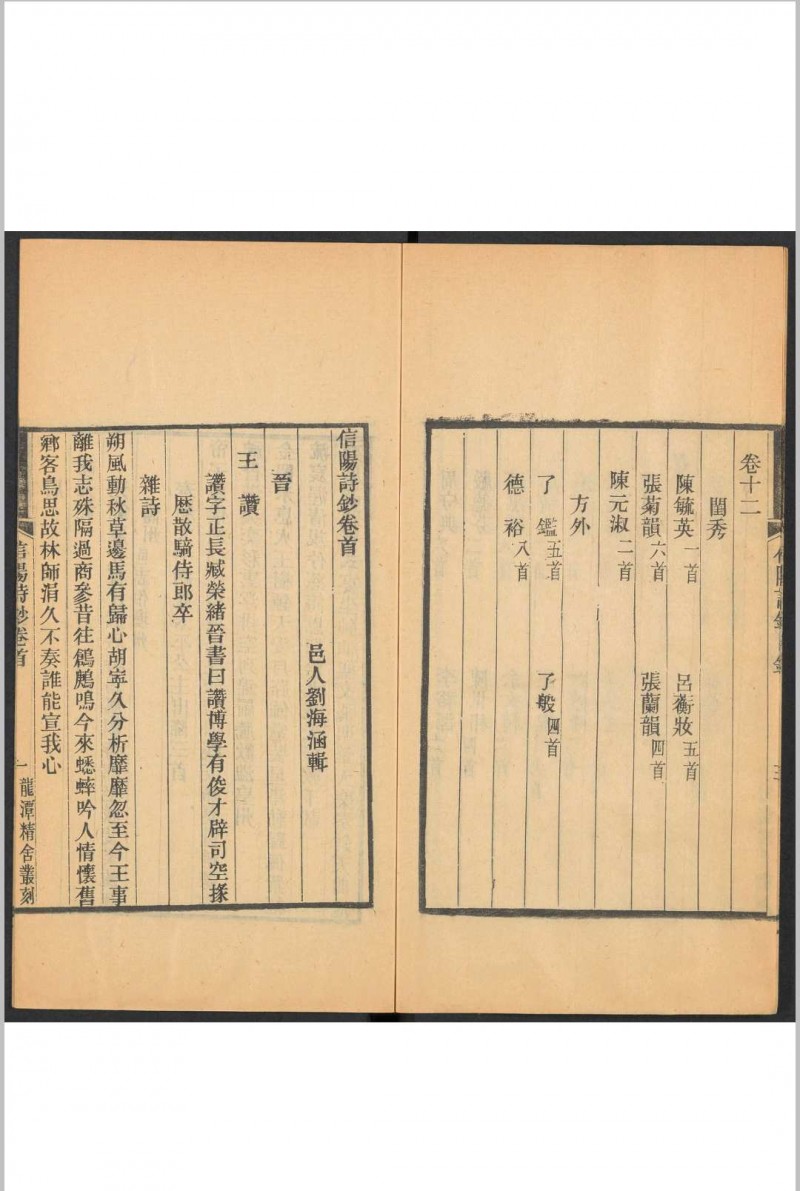 卷十二
閨秀
陳毓英 一首　呂蘅妝 五首
張菊韻 六首　張蘭韻 四首
陳元淑 二首
方外
了鑑 五首　了般 四首
德裕 八首
信陽詩鈔卷首
邑人劉海涵輯
晉
王讚
讚字正長臧榮緒晉書曰讚博學有俊才辟司空掾
歷散騎侍郎卒
雜詩
朔風動秋草邊馬有歸心胡寧久分析靡靡忽至今王事
離我志殊隔過商參昔往鶬鶊鳴今來蟋蟀吟人情懷舊
鄉客鳥思故林師涓久不奏誰能宣我心
信陽詩鈔卷首　一　龍潭精舍叢刻